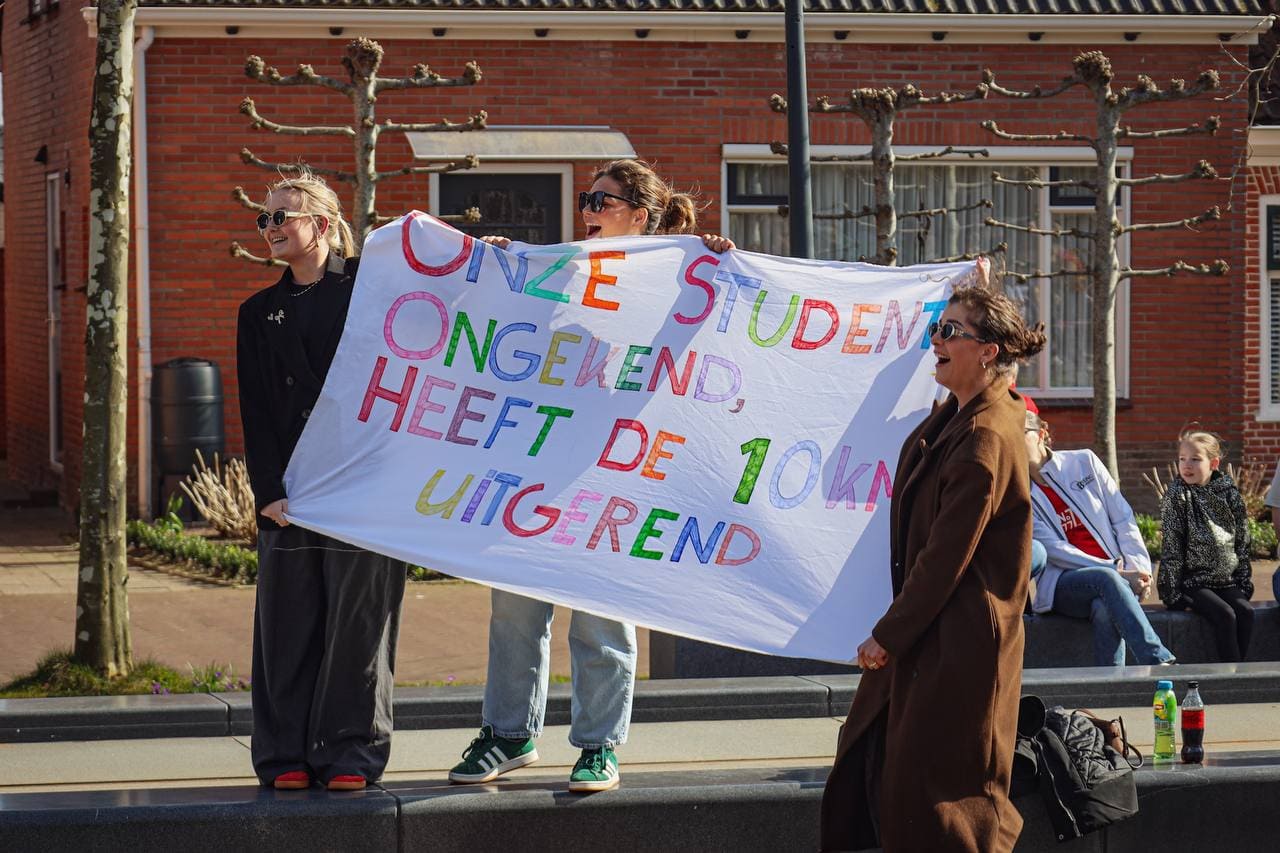 ONZE STUDENT
ONGEKEND,
HEEFT DE 10 KM
UITGEREND